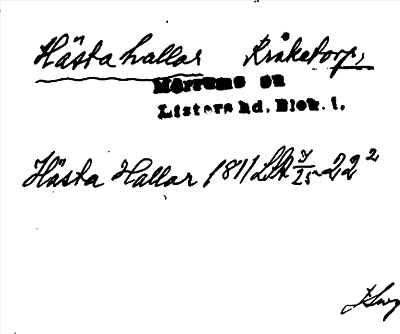 Hästa hallar Kråketorp,
Mörrums sn
Listers hd. Blek. l.
Hästa Hallar 1811 LSA 22²